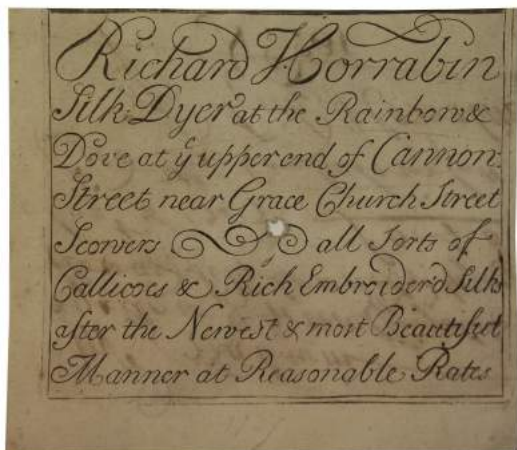 Richard Horrabin
Silk-Dyer at the Rainbow &
Dove at ye upper end of Cannon-
Street near Grace Church Street
Scowers all Sorts of
Callicoes & Rich Embroider'd Silks
after the Newest & most Beautifull
Manner at Reasonable Rates